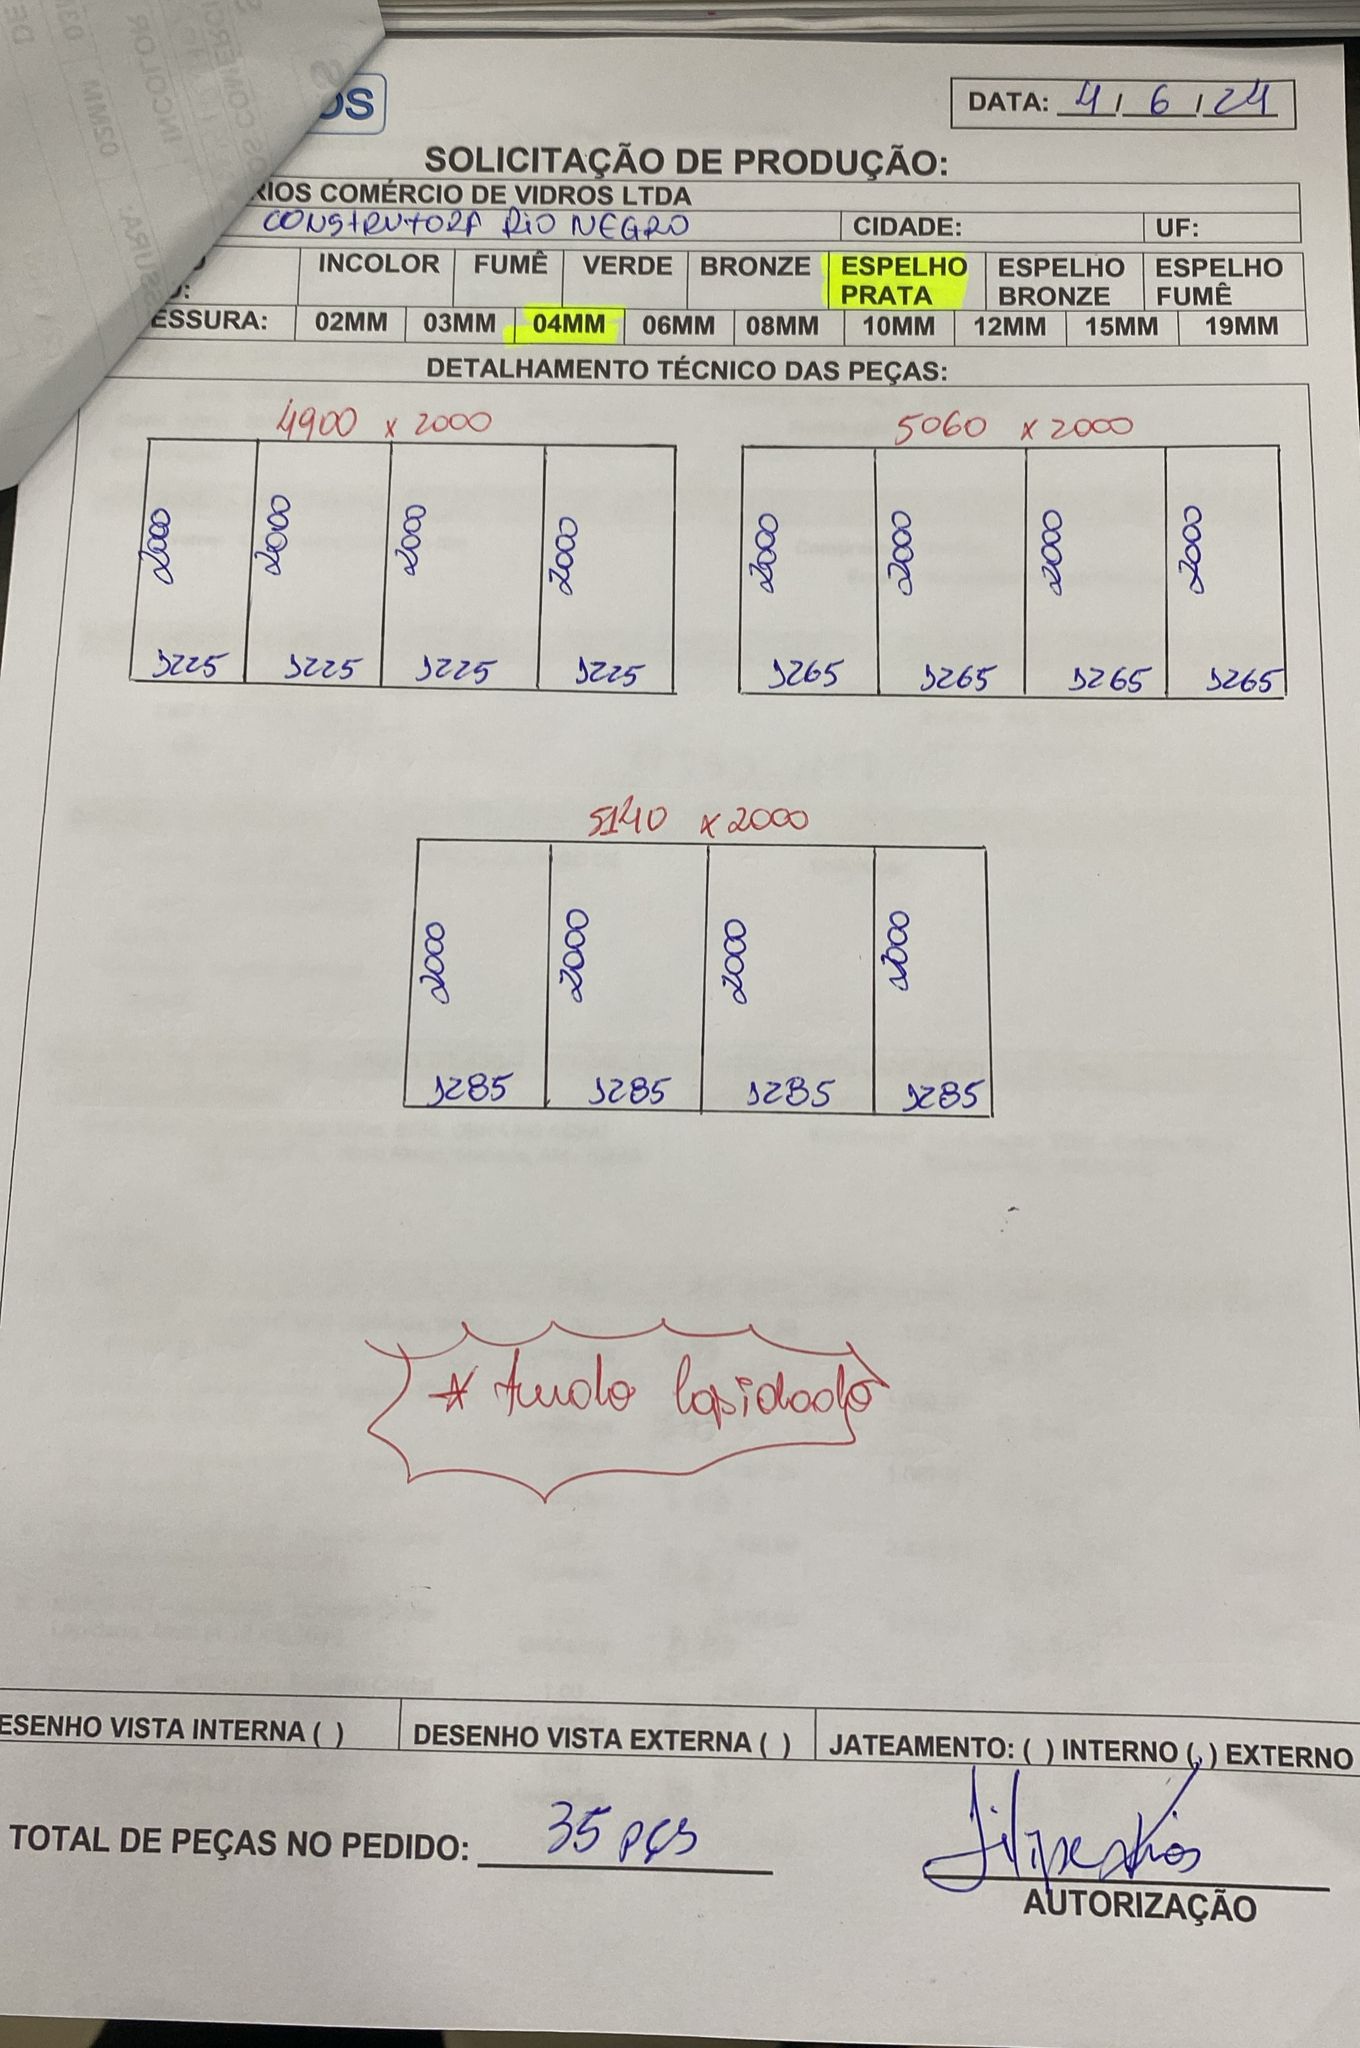 OS
DATA: 4 / 6 / 24
SOLICITAÇÃO DE PRODUÇÃO:
RIOS COMÉRCIO DE VIDROS LTDA
CONSTRUTORA RIO NEGRO CIDADE: UF:
INCOLOR FUMÊ VERDE BRONZE ESPELHO PRATA ESPELHO BRONZE ESPELHO FUMÊ
ESSURA: 02MM 03MM 04MM 06MM 08MM 10MM 12MM 15MM 19MM
DETALHAMENTO TÉCNICO DAS PEÇAS:
4900 x 2000 5060 x 2000
2000 2000 2000 2000 2000 2000 2000 2000
1225 1225 1225 1225 1265 1265 1265 1265
5140 x 2000
2000 2000 2000 2000
1285 1285 1285 1285
* tudo lapidado
ESENHO VISTA INTERNA ( ) DESENHO VISTA EXTERNA ( ) JATEAMENTO: ( ) INTERNO ( ) EXTERNO
TOTAL DE PEÇAS NO PEDIDO: 35 pçs
AUTORIZAÇÃO